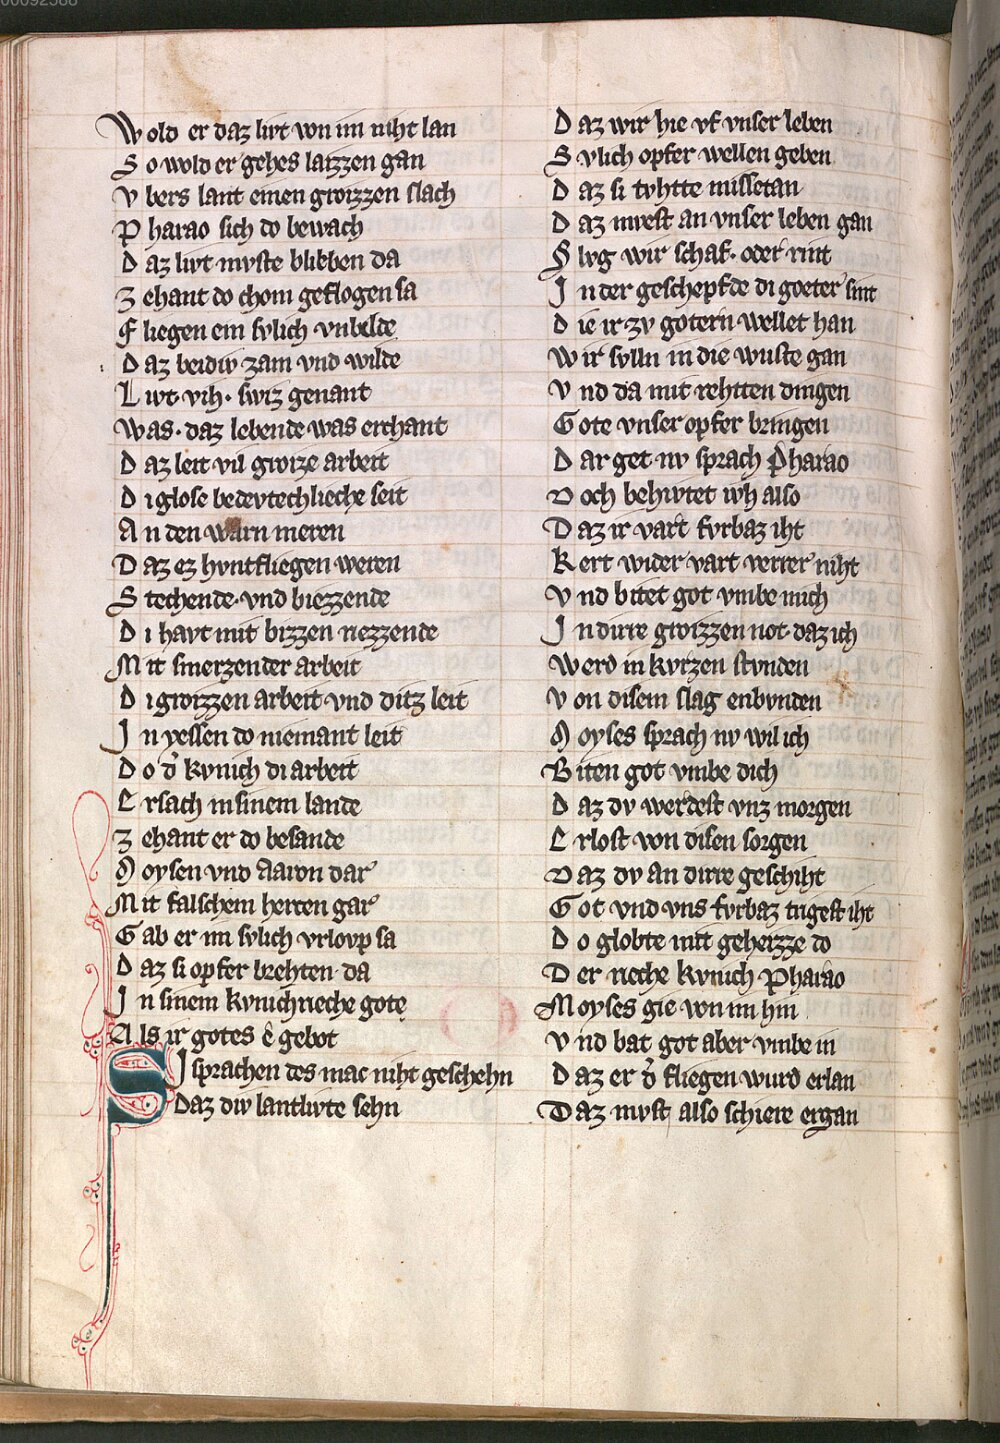 00092588
Wold er daz livt von im niht lan
So wold er gehes laizzen gan
Vbers lant einen groizzen slach
Pharao sich do bewach
Daz livt mvste blibben da
Zehant do chom geflogen sa
Fliegen ein svlich vnbilde
Daz beidiv zam vnd wilde
Livt· vih· swiz genant
Was· daz lebende was erchant
Daz leit vil groize arbeit
Di glose bedevtechlieche seit
An den warn meren
Daz ez hvntfliegen weren
Stechende· vnd biezzende
Di havt mit bizzen nezzende
Mit smerzender arbeit
Di groizzen arbeit vnd ditz leit
In yessen do niemant leit
Do d̾ kvnich di arbeit
Ersach in sinem lande
Zehant er do besande
Moysen vnd Aaron dar
Mit falschem herzen gar
Gab er im svlich vrlovp sa
Daz si opfer brehten da
In sinem kvnichreche gote
Als ir gotes e gebot
Si sprachen des mac niht geschehn
Daz div lantlivte sehn
Daz wir hie vf vnser leben
Svlich opfer wellen geben
Daz si tvhtte missetan
Daz mvest an vnser leben gan
Slvg wir schaf· oder rint
In der geschepfde di goeter sint
Die ir zv gotern wellet han
Wir svlln in die wuste gan
Vnd da mit rehtten dingen
Gote vnser opfer bringen
Dar get nv sprach Pharao
Doch behivtet ivh also
Daz ir vart fvrbaz iht
Kert wider vart verrer niht
Vnd bitet got vmbe mich
In dirre groizzen not· daz ich
Werd in kvrzen stvnden
Von disem slag enbvnden
Moyses sprach nv wil ich
Biten got vmbe dich
Daz dv werdest vnz morgen
Erlost von disen sorgen
Daz dv an dirre geschiht
Got vnd vns fvrbaz trigest iht
Do globte mit geheizze do
Der reche kvnich Pharao
Moyses gie von im hin
Vnd bat got aber vmbe in
Daz er d̾ fliegen wurd erlan
Daz mvst also schiere ergan